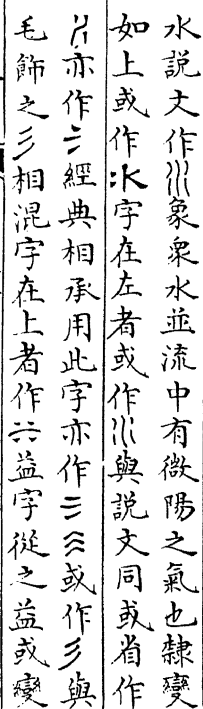 水說文作𣱱象衆水並流中有微陽之氣也隸變
如上或作氺字在左者或作川與說文同或省作
亦作二經典相承用此字亦作三𠄠或作彡與
毛飾之彡相混字在上者作益字從之益或變